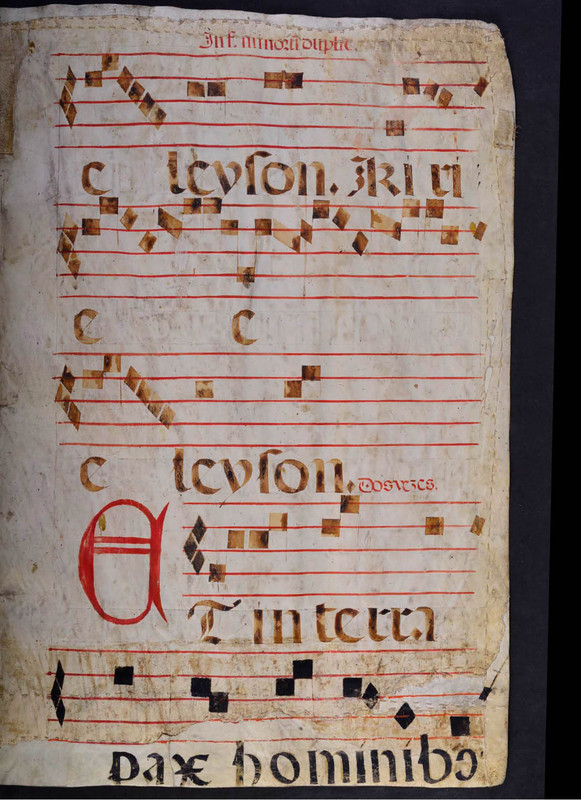 In f. minoris duplic.
e leyson. Kiri
e e
e leyson. Dos vezes.
ET in terra
pax hominibꝰ